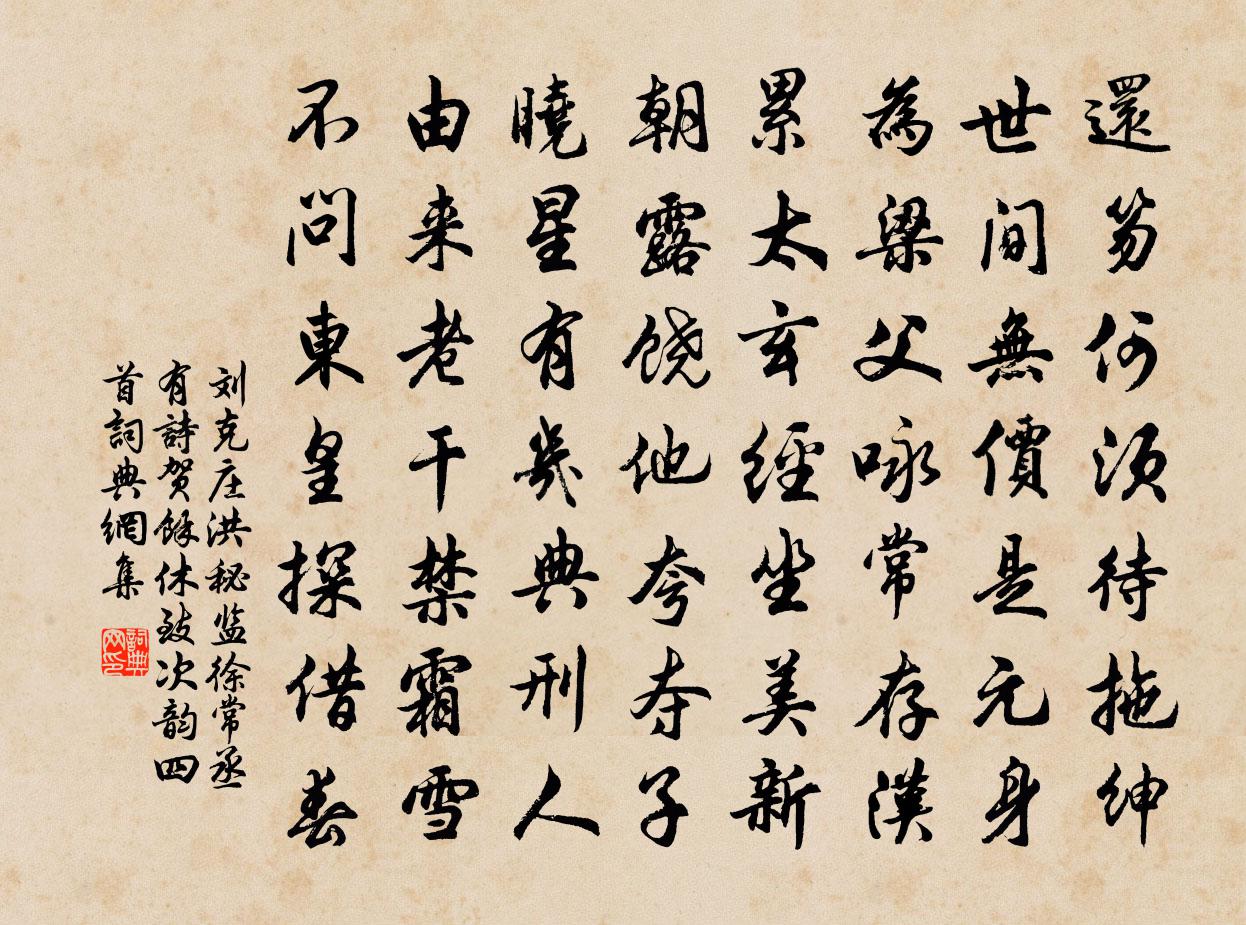 還笏何須待拖紳
世間無價是元身
為梁父咏常存漢
累太玄經坐美新
朝露饶他夸夺子
曉星有幾典刑人
由来老干禁霜雪
不問東皇探借春
刘克庄洪秘监徐常丞
有詩贺餘休致次韵四
首詞典網集
詞典网印